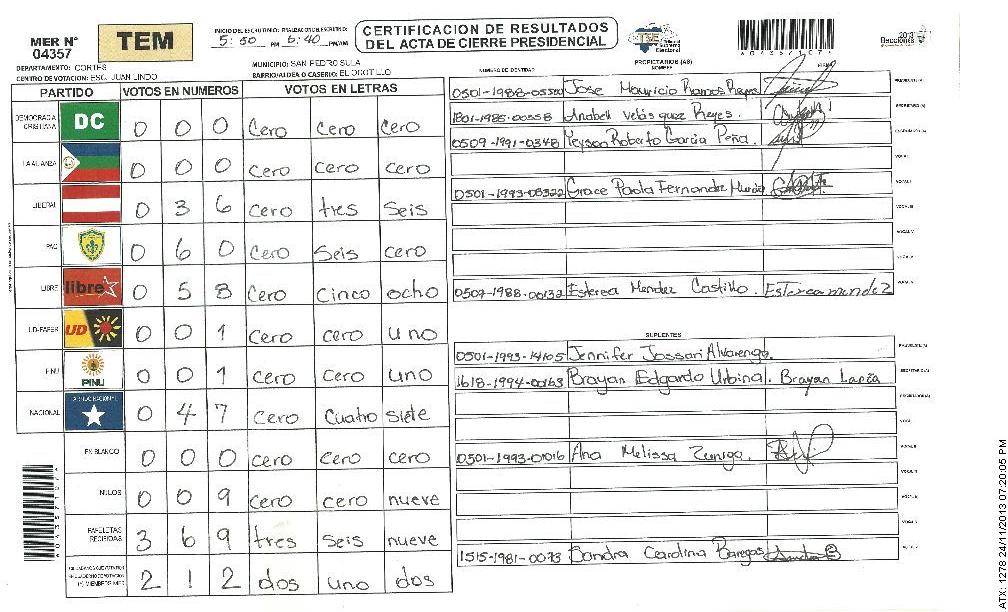 MER N° 04357
TEM
INICIO DEL ESCRUTINIO: FINALIZACION DE ESCRUTINIO:
5:50 PM 6:40 PM/AM
CERTIFICACION DE RESULTADOS
DEL ACTA DE CIERRE PRESIDENCIAL
TSE Tribunal Supremo Electoral
Elecciones 2013
DEPARTAMENTO: CORTES
MUNICIPIO: SAN PEDRO SULA
CENTRO DE VOTACION: ESC. JUAN LINDO
BARRIO/ALDEA O CASERIO: EL OCOTILLO
PARTIDO VOTOS EN NUMEROS VOTOS EN LETRAS
DEMOCRACIA CRISTIANA DC 0 0 0 Cero Cero Cero
LA ALIANZA 0 0 0 Cero cero cero
LIBERAL 0 3 6 Cero tres Seis
PAC 0 6 0 Cero Seis cero
LIBRE libre 0 5 8 Cero Cinco ocho
UD-FAPER UD 0 0 1 Cero cero uno
PINU PINU 0 0 1 Cero Cero uno
NACIONAL 0 4 7 Cero Cuatro Siete
EN BLANCO 0 0 0 Cero Cero Cero
NULOS 0 0 9 Cero cero nueve
PAPELETAS RECIBIDAS 3 6 9 tres Seis nueve
2 1 2 dos uno dos
NUMERO DE IDENTIDAD PROPIETARIOS (AS) NOMBRE FIRMA
Jose Mauricio Ramos Reyes PRESIDENTE (A)
1801-1985-00558 Anabell Velásquez Reyes. SECRETARIO (A)
0509-1991-0348 Yeyson Roberto Garcia Peña. ESCRUTADOR (A)
VOCAL I
Grace Paola Fernandez VOCAL II
VOCAL III
VOCAL IV
VOCAL V
0507-1988-00132 Esterea Mendez Castillo. Esterea mendez
SUPLENTES
0501-1993-14105 Jennifer Jossari Alvarenga. PRESIDENTE (A)
1618-1994-00163 Brayan Edgardo Urbina. Brayan SECRETARIO (A)
ESCRUTADOR (A)
VOCAL I
0501-1993-01016 Ana Melissa Zuniga. VOCAL II
VOCAL III
VOCAL IV
VOCAL V
Sandra Carolina
ATX: 1278 24/11/2013 07:20:05 PM